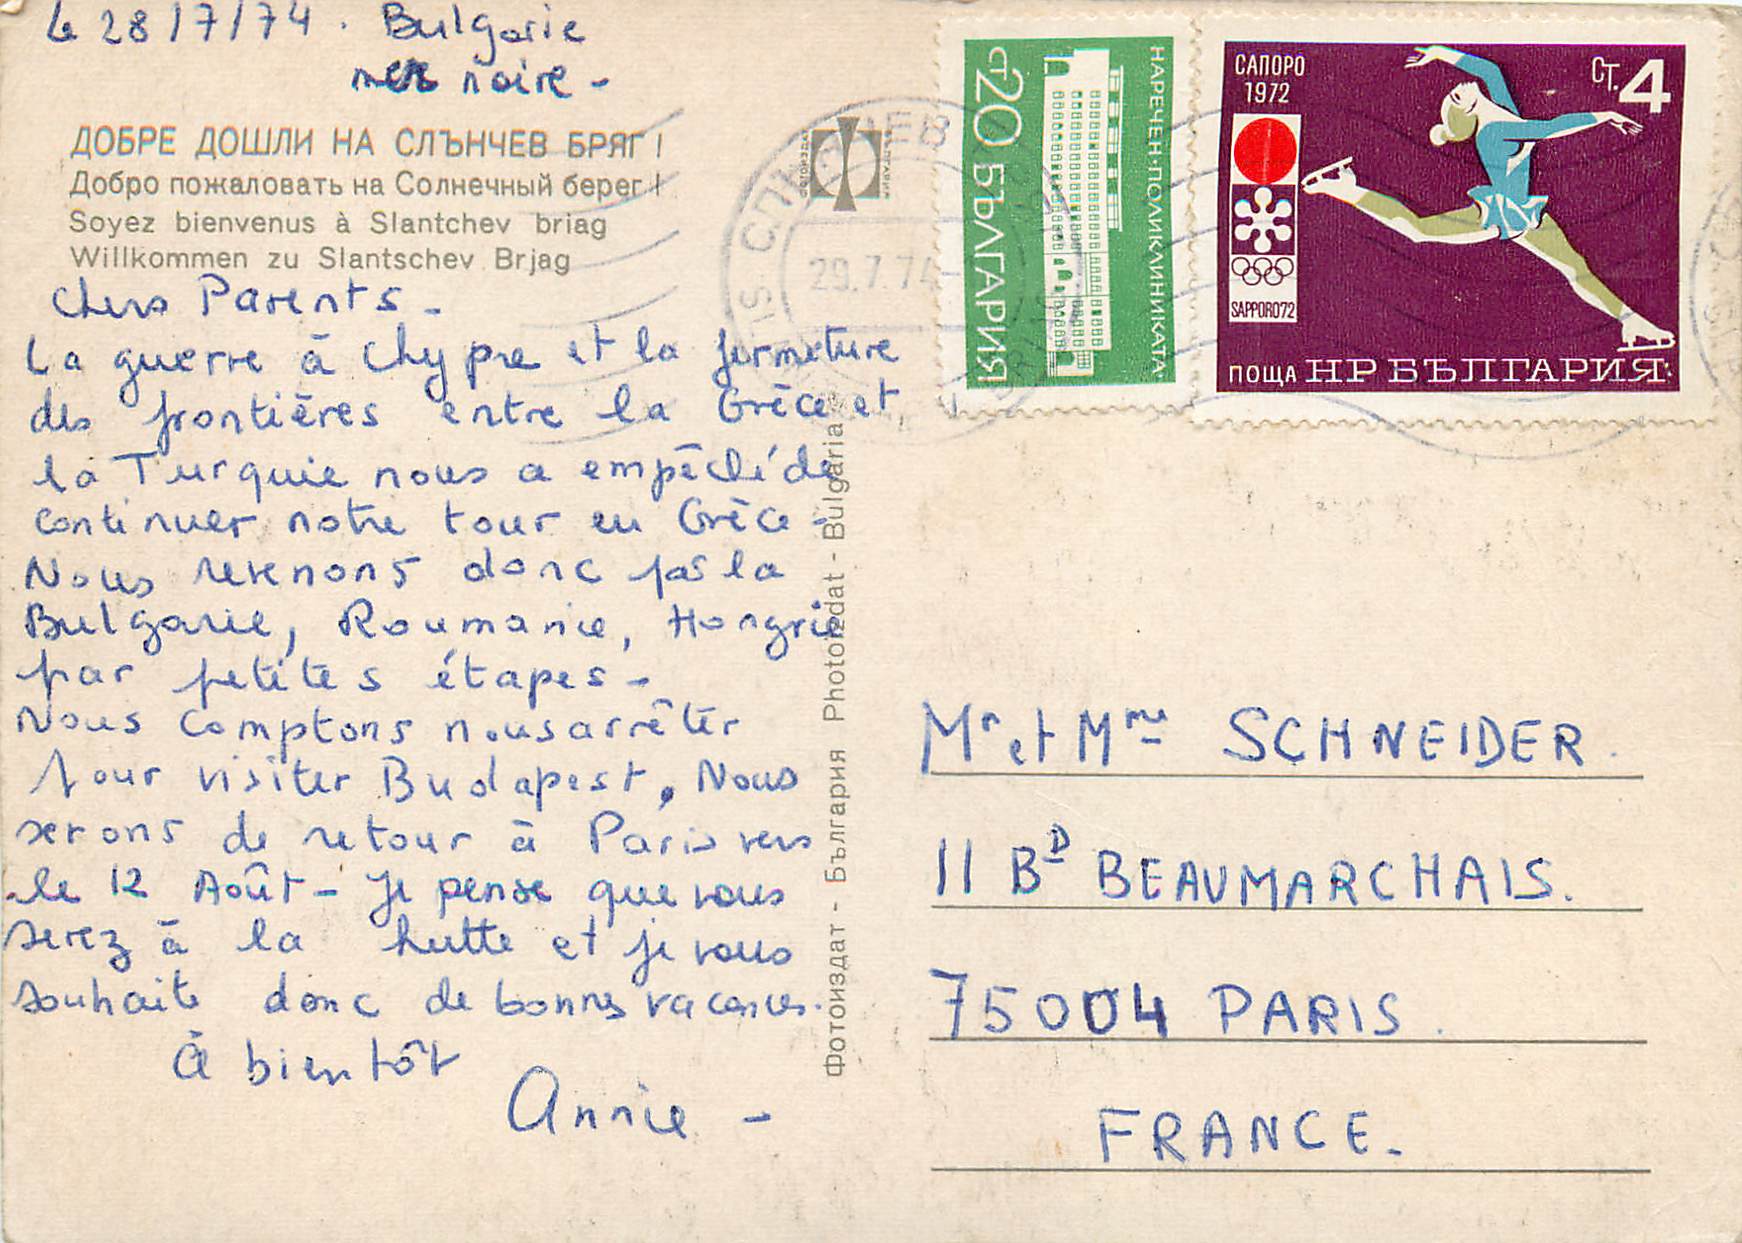 le 28/7/74. Bulgarie
mer noire -
ДОБРЕ ДОШЛИ НА СЛЪНЧЕВ БРЯГ!
Добро пожаловать на Солнечный берег!
Soyez bienvenus à Slantchev briag
Willkommen zu Slantschev Brjag
Chers Parents -
La guerre à Chypre et la fermeture
des frontières entre la Grèce et
la Turquie nous a empêché de
continuer notre tour en Grèce -
Nous revenons donc par la
Bulgarie, Roumanie, Hongrie
par petites étapes -
Nous comptons nous arrêter
pour visiter Budapest, Nous
serons de retour à Paris vers
le 12 Août - Je pense que vous
serez à la hutte et je vous
souhaite donc de bonnes vacances.
à bientôt
Annie -
Фотоиздат - България Photoizdat - Bulgaria
29.7.74
НАРЕЧЕН·ПОЛИКЛИНИКАТА
СТ 20 БЪЛГАРИЯ
САПОРО
1972
СТ. 4
SAPPORO72
ПОЩА НР БЪЛГАРИЯ
Mr et Mme SCHNEIDER
11 BD BEAUMARCHAIS.
75004 PARIS.
FRANCE.